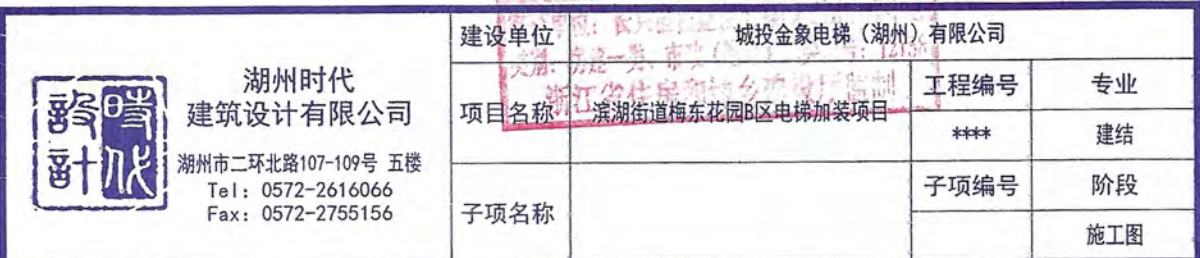 時代
設計
湖州时代
建筑设计有限公司
湖州市二环北路107-109号 五楼
Tel: 0572-2616066
Fax: 0572-2755156
建设单位
城投金象电梯（湖州）有限公司
项目名称
滨湖街道梅东花园B区电梯加装项目
工程编号
专业
****
建结
子项名称
子项编号
阶段
施工图
浙江省住房和城乡建设厅监制